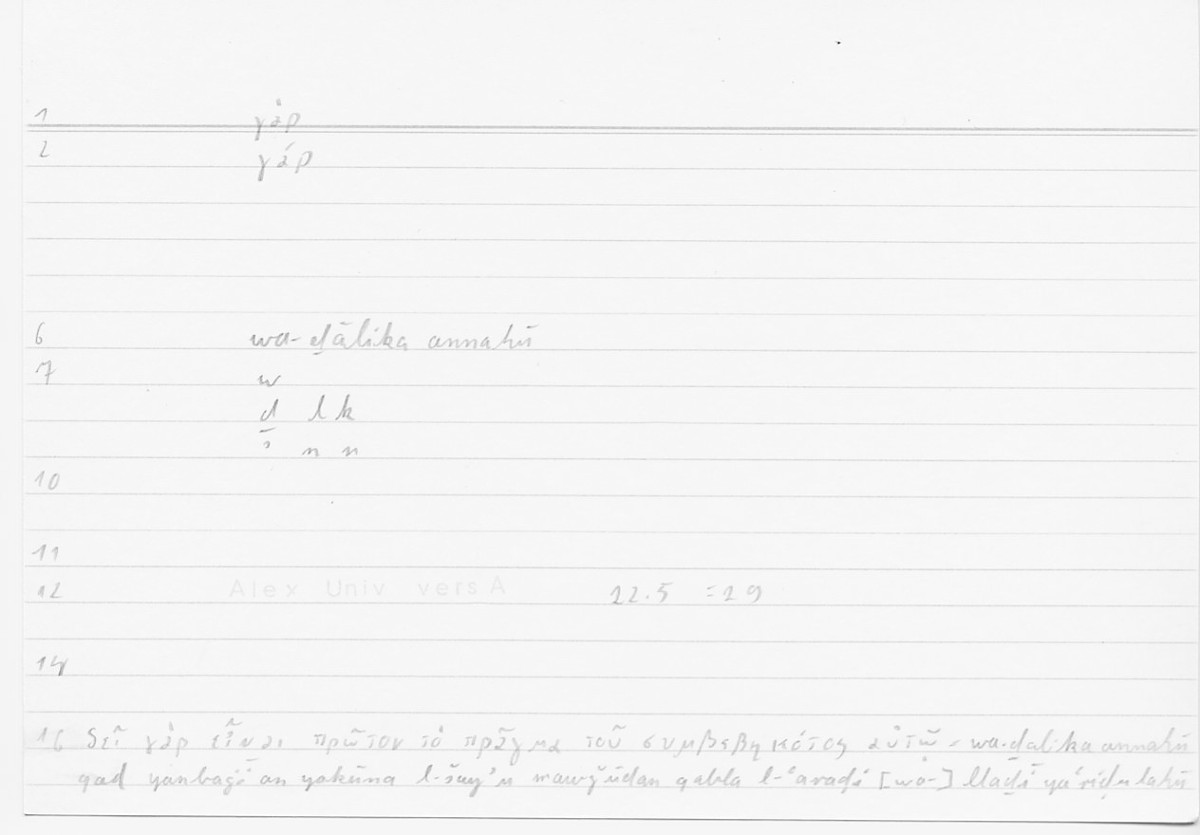 1 γὰρ
2 γάρ
6 wa-ḏālika annahū
7 w
ḏ l k
ʾ n n
10
11
12 Alex Univ vers A 22.5 =29
14
16 δεῖ γὰρ εἶναι πρῶτον τὸ πρᾶγμα τοῦ συμβεβηκότος αὐτῷ - wa-ḏalika annahū
qad yanbaġī an yakūna l-šayʾu mawǧūdan qabla l-ʿaraḍi [wa-] llaḏī yaʿriḍu lahū